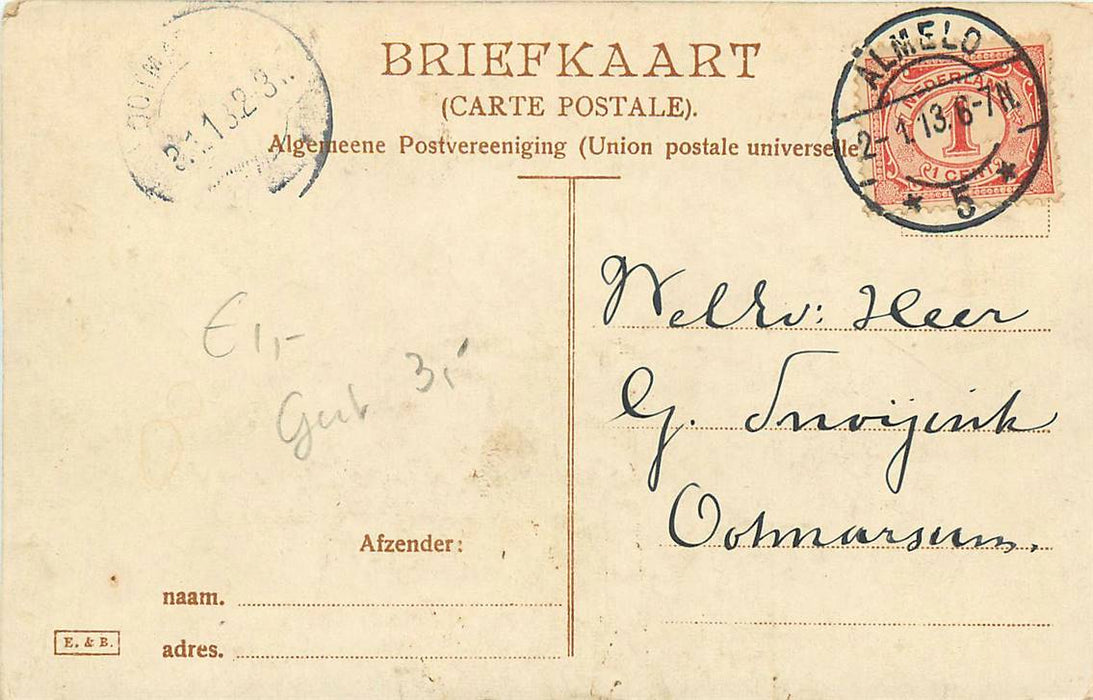 BRIEFKAART
(CARTE POSTALE).
Algemeene Postvereeniging (Union postale universelle)
ALMELO
2-1 13.6-7N.
* 5 *
NEDERLAND
1
1 CENT
3.1.13.2-3
€1,-
3,-
WelEv: Heer
G.
Ootmarsum.
Afzender:
naam.
adres.
E. & B.